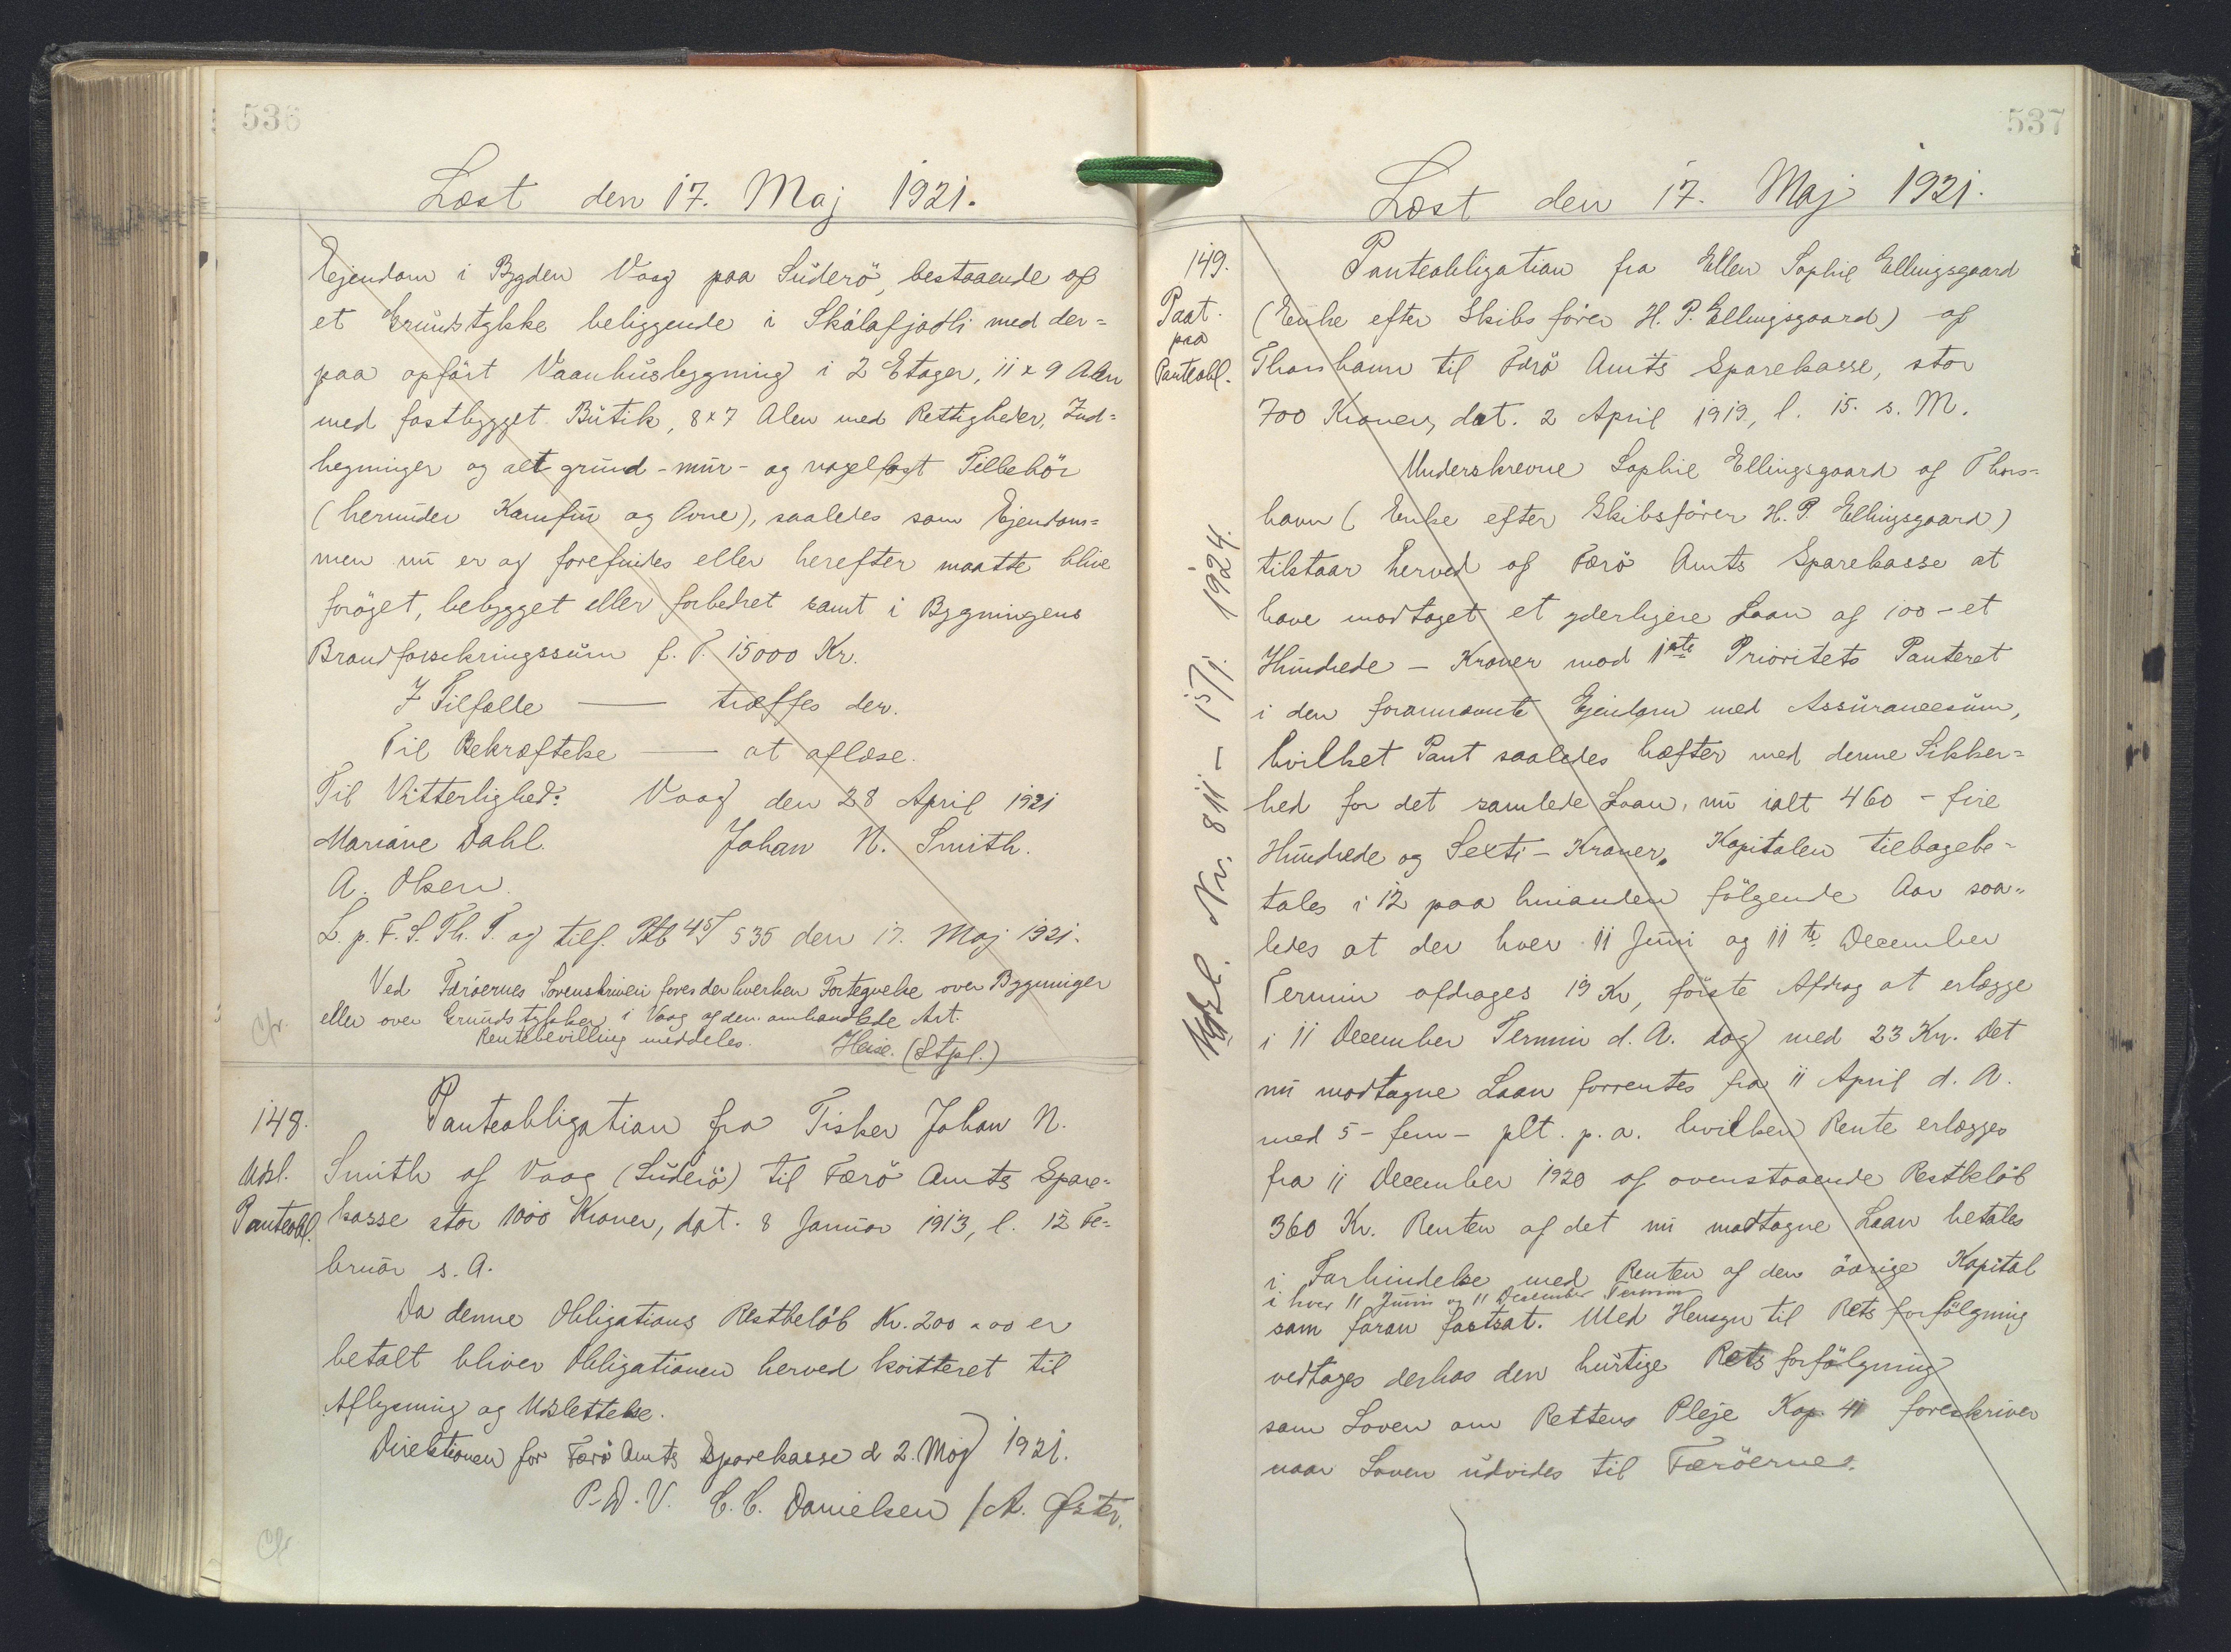 536
Læst den 17. Maj 1921.
Ejendom i Bygden Vaag paa Suderö, bestaaende af
et Grundstykke beliggende i Skálafjødli med der=
paa opfört Vaanhusbygning i 2 Etager, 11 x 9 Alen
med fastbygget Butik, 8 x 7 Alen med Rettigheder, Ind=
hegninger og alt grund- mur- og nagelfast Tilbehör
(herunder Komfur og Ovne), saaledes som Ejendom=
men nu er og forefindes eller herefter maatte blive
foröget, bebygget eller forbedret samt i Bygningens
Brandforsikringssum f. T. 15000 Kr.
I Tilfælde — træffes der.
Til Bekræftelse — at aflæse.
Til Vitterlighed: Vaag den 28 April 1921
Mariane Dahl. Johan N. Smith.
A. Olsen.
L. p. F. S. Th. T. og tilf. Ptb 45/535 den 17. Maj 1921.
Ved Færöernes Sorenskriveri föres der hverken Fortegnelse over Bygninger
eller over Grundstykker i Vaag af den omhandlede Art.
Cfr. Rentebevilling meddeles. Heise. (Stpl.)
148.
Udsl.
Panteobl.
Panteobligation fra Fisker Johan N.
Smith af Vaag (Suderö) til Færö Amts Spare=
kasse stor 1000 Kroner, dat. 8 Januar 1913, l. 12 Fe=
bruar s. A.
Da denne Obligations Restbelöb Kr. 200 " 00 er
betalt bliver Obligationen herved kvitteret til
Aflysning og Udslettelse.
Direktionen for Færö Amts Sparekasse d 2. Maj 1921.
P. D. V. C. C. Danielsen / A. Øster.
Cfr
537
Læst den 17. Maj 1921.
149.
Paat.
paa
Panteobl.
Udsl. Nr. 811 - 15/1. 1924.
Panteobligation fra Ellen Sophie Ellingsgaard
(Enke efter Skibsförer H. P. Ellingsgaard) af
Thorshavn til Færö Amts Sparekasse, stor
700 Kroner, dat. 2 April 1919, l. 15. s. M.
Underskrevne Sophie Ellingsgaard af Thors=
havn (Enke efter Skibsförer H. P. Ellingsgaard)
tilstaar herved af Færö Amts Sparekasse at
have modtaget et yderligere Laan af 100 - et
Hundrede - Kroner mod 1ste Prioritets Panteret
i den forannævnte Ejendom med Assurancesum,
hvilket Pant saaledes hæfter med denne Sikker=
hed for det samlede Laan, nu ialt 460 - fire
Hundrede og Sexti - Kroner. Kapitalen tilbagebe=
tales i 12 paa hinanden fölgende Aar saa=
ledes at der hver 11 Juni og 11te December
Termin afdrages 19 Kr, förste Afdrag at erlægge
i 11 December Termin d. A. dog med 23 Kr. Det
nu modtagne Laan forrentes fra 11 April d. A.
med 5 - fem - pCt. p. a. hvilken Rente erlægges
fra 11 December 1920 af ovenstaaende Restbelöb
360 Kr. Renten af det nu modtagne Laan betales
i Forbindelse med Renten af den övrige Kapital
i hver 11 Juni og 11 December Termin
som foran fastsat. Med Hensyn til Retsforfölgning
vedtages derhos den hurtige Retsforfölgning
som Loven om Rettens Pleje Kap 41 foreskriver
naar Loven udvides til Færöerne.